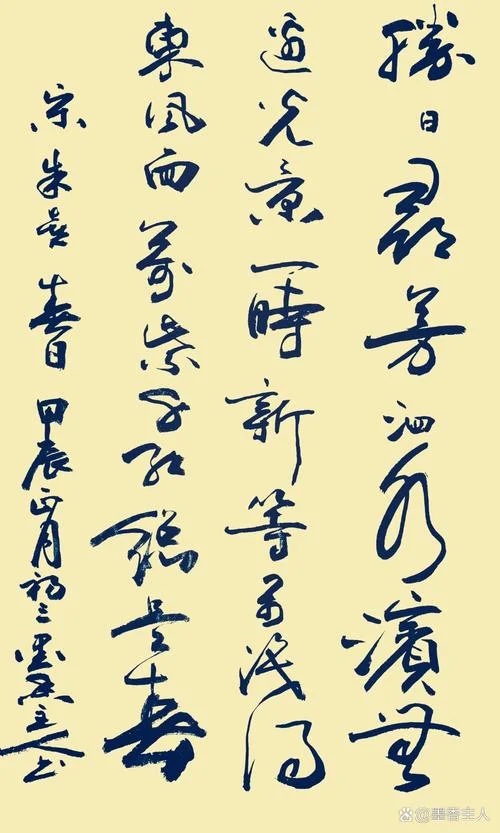 勝日尋芳泗水濱無
邊光景一時新等閒識得
東風面萬紫千紅總是春
宋朱熹春日甲辰正月初三墨香主人書
@墨香主人